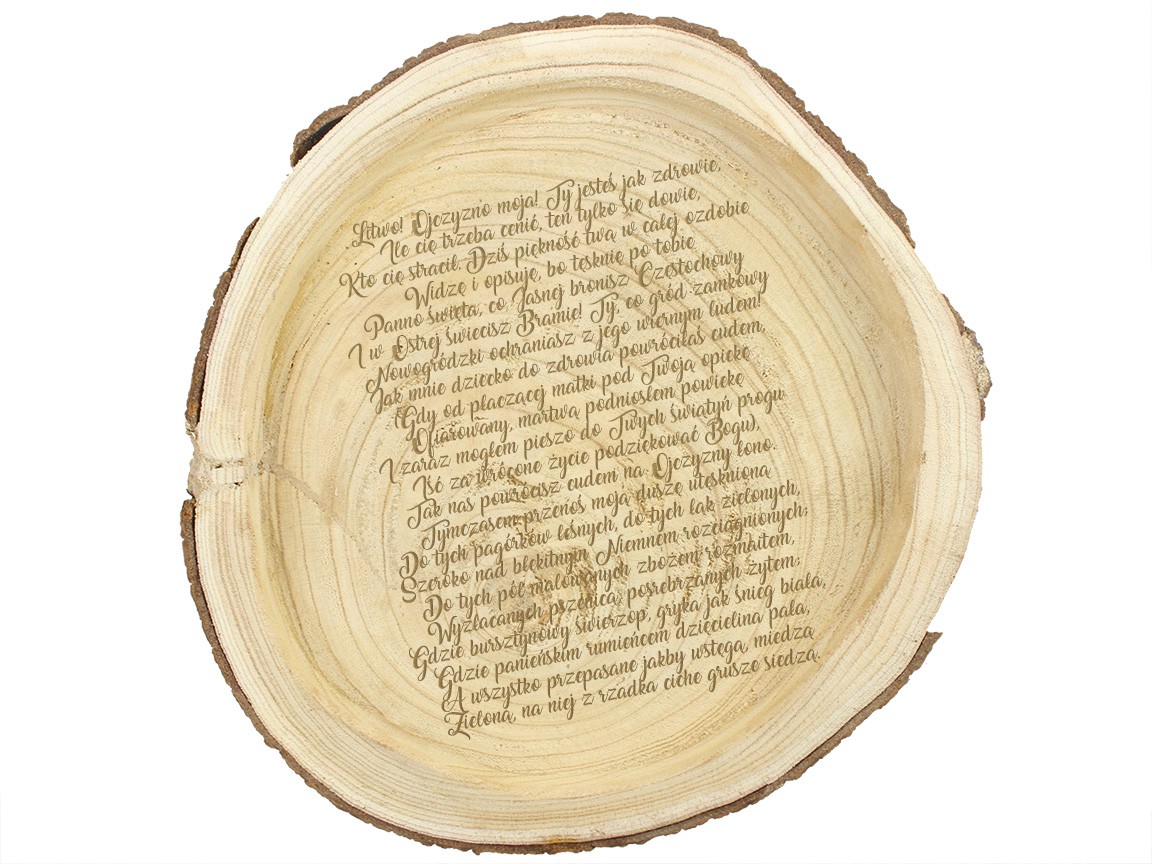 Litwo! Ojczyzno moja! Ty jesteś jak zdrowie,
Ile cię trzeba cenić, ten tylko się dowie,
Kto cię stracił. Dziś piękność twą w całej ozdobie
Widzę i opisuję, bo tęsknię po tobie
Panno święta, co Jasnej bronisz Częstochowy
I w Ostrej świecisz Bramie! Ty, co gród zamkowy
Nowogródzki ochraniasz z jego wiernym ludem!
Jak mnie dziecko do zdrowia powróciłaś cudem,
(Gdy od płaczącej matki pod Twoją opiekę
Ofiarowany, martwą podniosłem powiekę
I zaraz mogłem pieszo do Twych świątyń progu
Iść za wrócone życie podziękować Bogu),
Tak nas powrócisz cudem na Ojczyzny łono.
Tymczasem przenoś moją duszę utęsknioną
Do tych pagórków leśnych, do tych łąk zielonych,
Szeroko nad błękitnym Niemnem rozciągnionych;
Do tych pól malowanych zbożem rozmaitem,
Wyzłacanych pszenicą, posrebrzanych żytem;
Gdzie bursztynowy świerzop, gryka jak śnieg biała,
Gdzie panieńskim rumieńcem dzięcielina pała,
A wszystko przepasane jakby wstęgą, miedzą
Zieloną, na niej z rzadka ciche grusze siedzą.